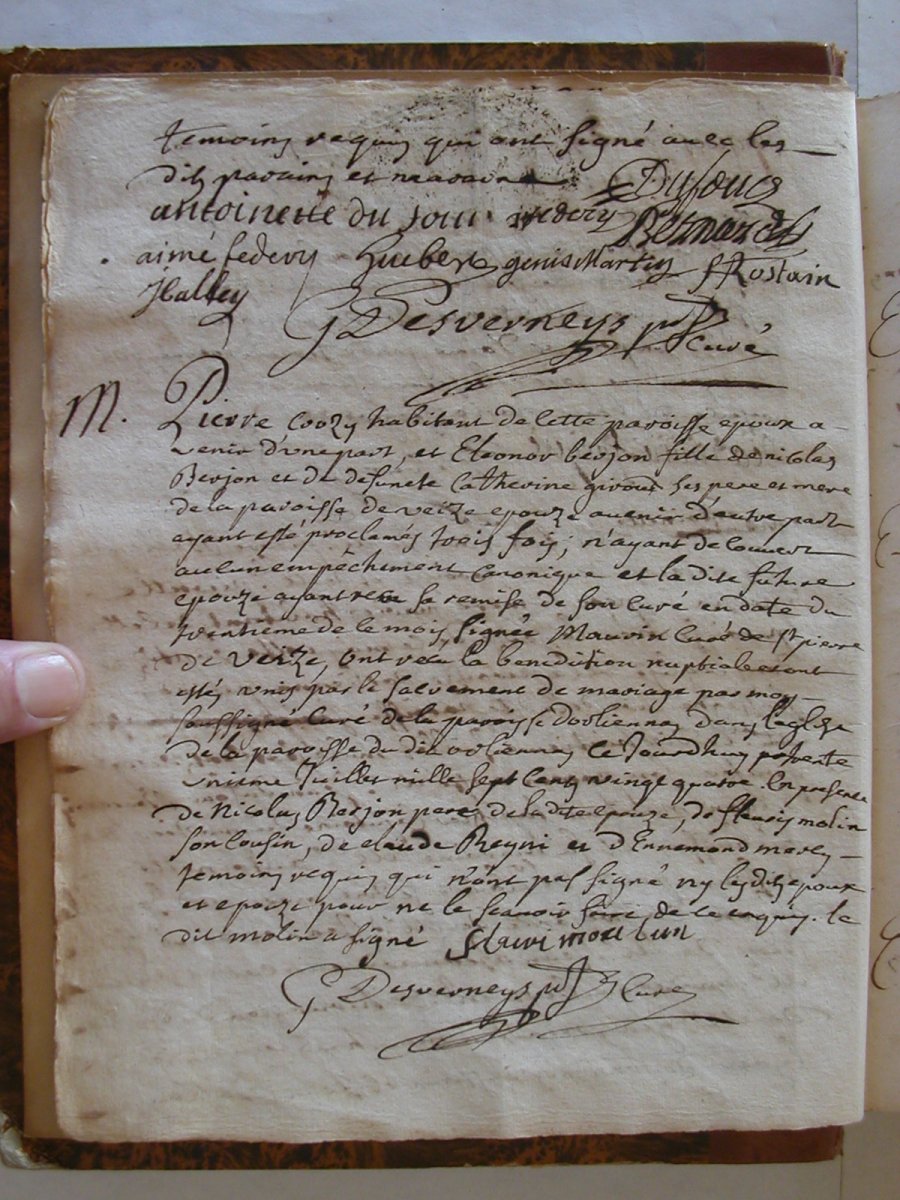 temoins requis qui ont signé avec les
dits parains et maraine Dufour
antoinette du four Bernard
aimé federy Guibert genis Martin f Rostain
Halley
G Desverneys ptre Curé
M. Pierre Corzy habitant de cette paroisse epoux a
venir d'une part, et Eleonor berjon fille de nicolas
Berjon et de defuncte Catherine giroud ses pere et mere
de la paroisse de veize epouze avenir d'autre part
ayant esté proclamés trois fois, n'ayant decouvert
aucun empêchement canonique et la dite future
epouze ayant receu sa remise de son curé en date du
trentieme de ce mois, signée Mauvin curé de st pierre
de veize, ont receu la benediction nuptiale et ont
estés unis par le sacrement de mariage par moy
soussigné curé de la paroisse dorliennas dans leglize
de la paroisse du dit orliennas ce Jourdhuy trente
unieme Juillet mille sept cens vingt quatre. En presence
de Nicolas Berjon pere de la dite epouze, de fleury molin
son cousin, de claude Reyni et d'Ennemond
temoins requis qui n'ont pas signé ny les dits epoux
et epouze pour ne le scavoir faire, de ce enquis. le
dit molin a signé fleuri moulun
G Desverneys ptre Curé